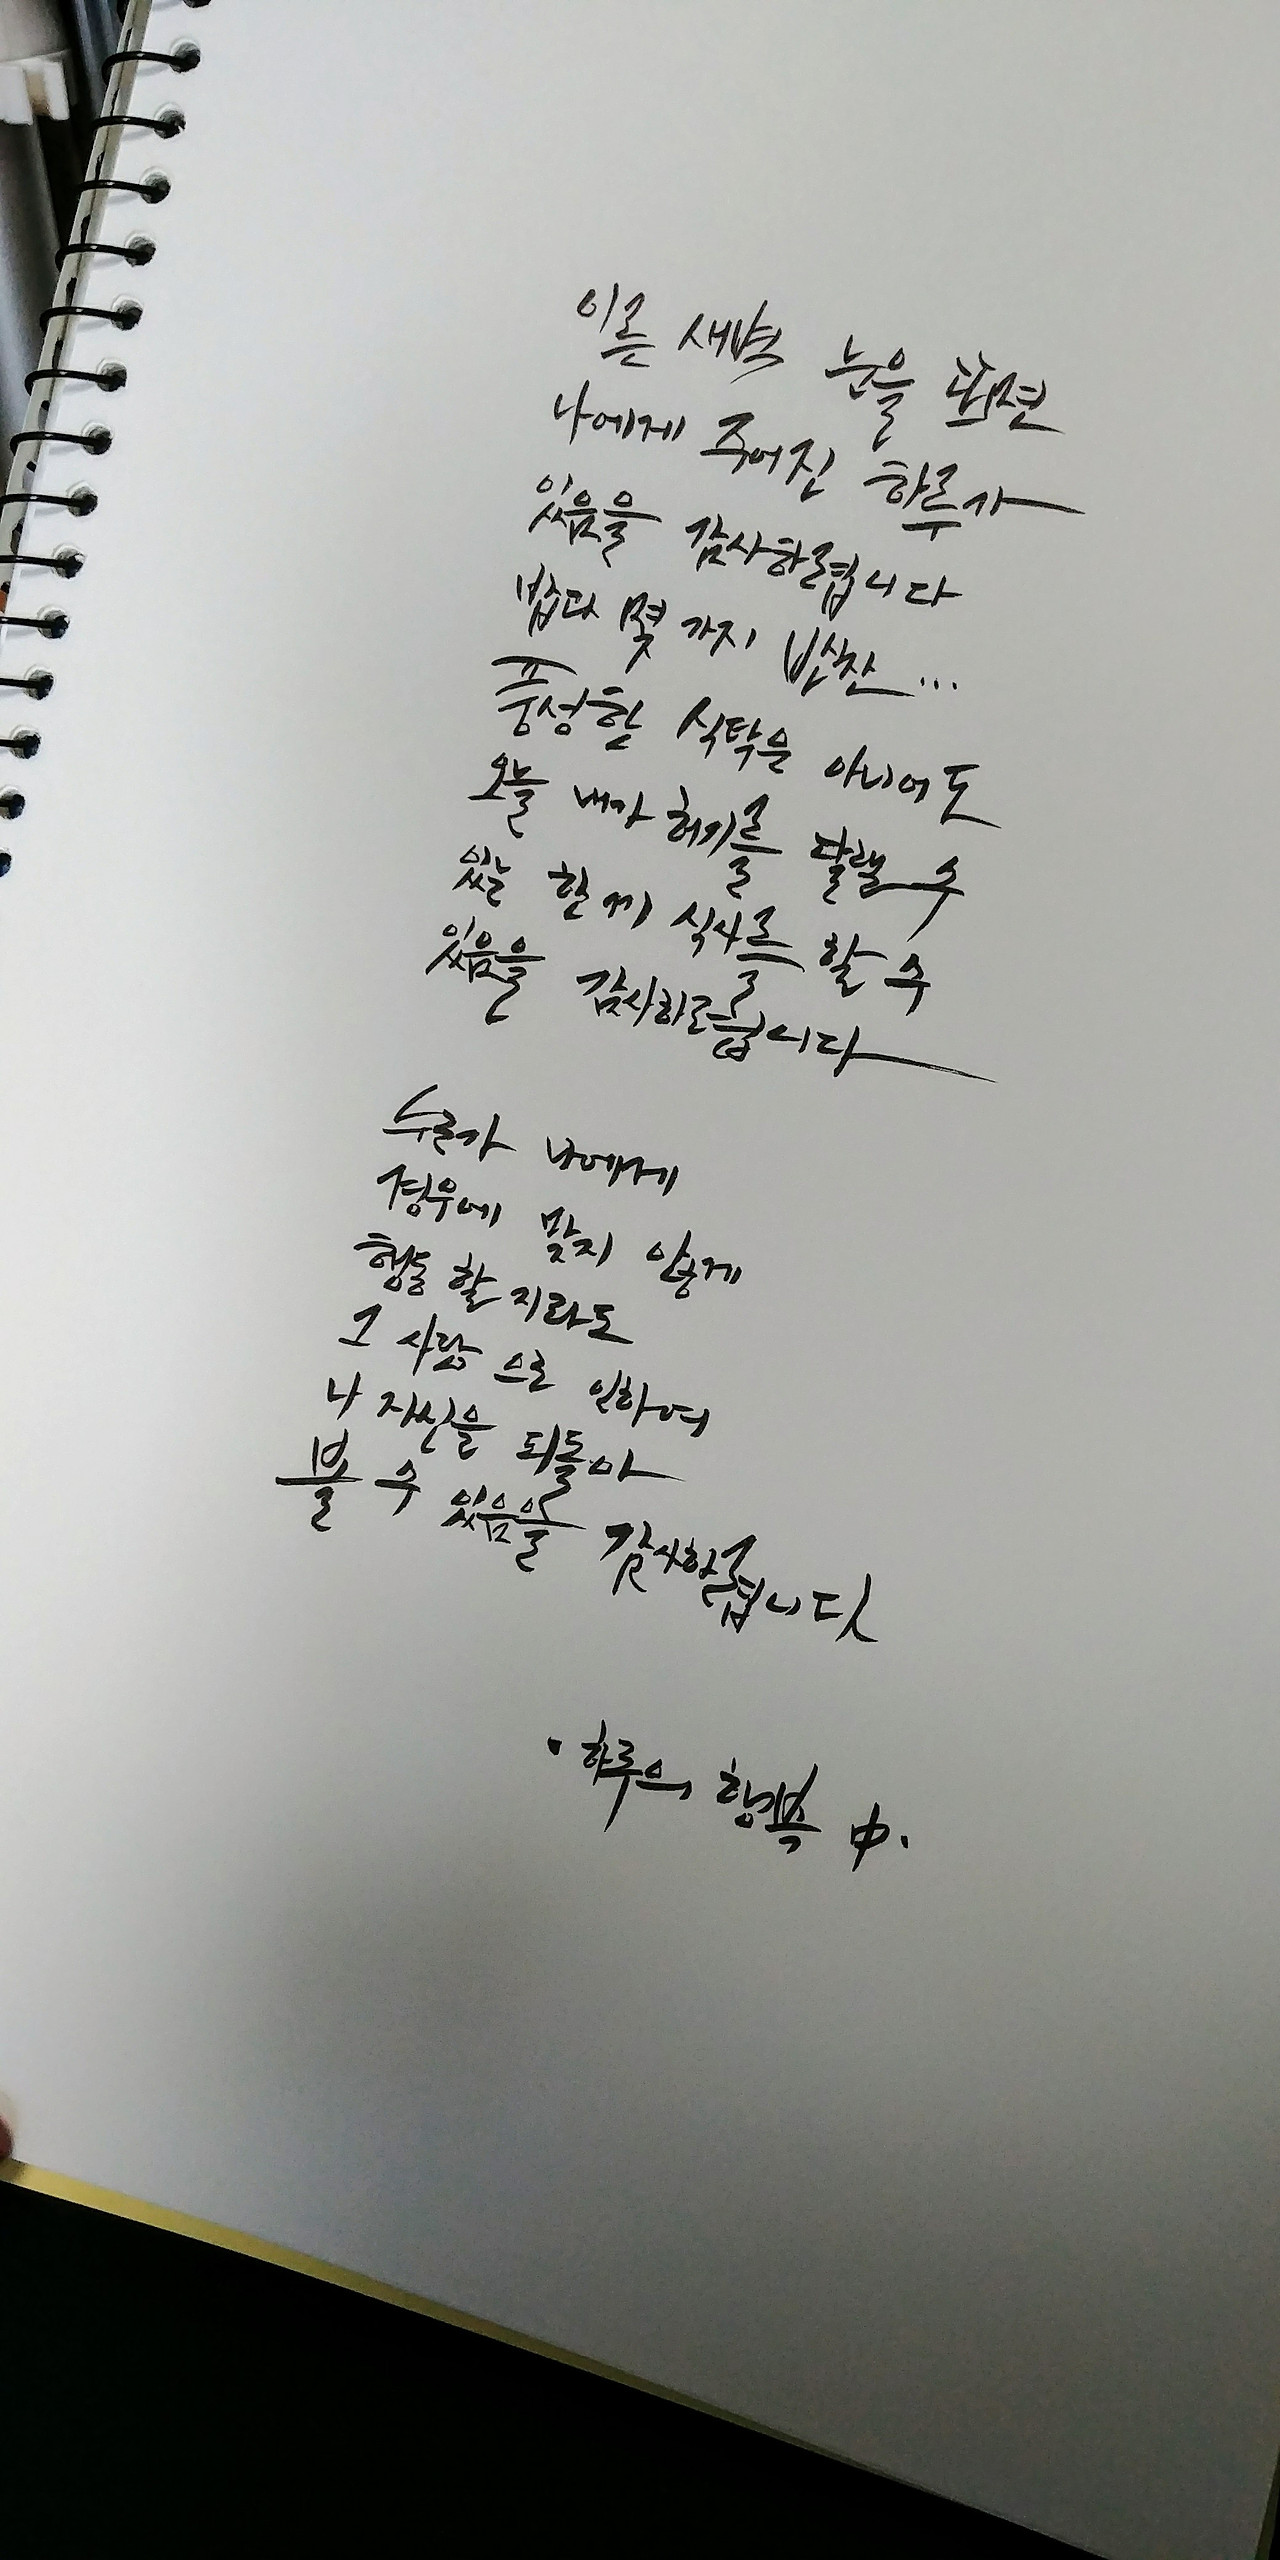 이른 새벽 눈을 뜨면
나에게 주어진 하루가
있음을 감사하렵니다
밥과 몇 가지 반찬...
풍성한 식탁은 아니어도
오늘 내가 허기를 달랠 수
있는 한 끼 식사를 할 수
있음을 감사하렵니다
누군가 나에게
경우에 맞지 않게
행동 할 지라도
그 사람 으로 인하여
나 자신을 되돌아
볼 수 있음을 감사하렵니다
· 하루의 행복 中.